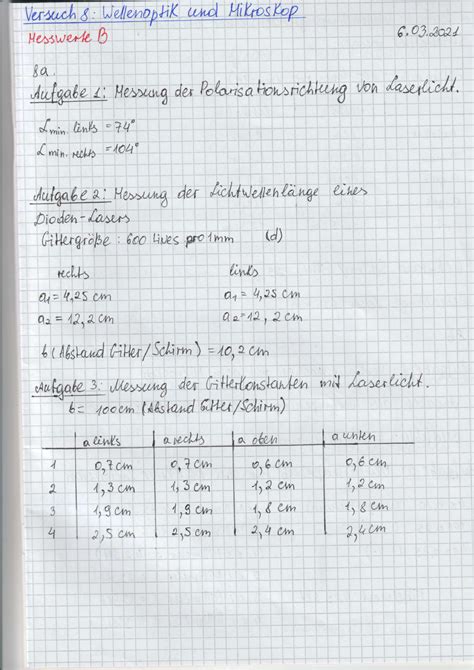 Versuch 8: Wellenoptik und Mikroskop
Messwerte B
6.03.2021
8a.
Aufgabe 1: Messung der Polarisationsrichtung von Laserlicht.
α min. links = 74°
α min. rechts = 104°
Aufgabe 2: Messung der Lichtwellenlänge eines
Dioden-Lasers
Gittergröße: 600 lives pro 1mm (d)
rechts links
a₁ = 4,25 cm a₁ = 4,25 cm
a₂ = 12,2 cm a₂ = 12,2 cm
b (Abstand Gitter/Schirm) = 10,2 cm
Aufgabe 3: Messung der Gitterkonstanten mit Laserlicht.
b = 100cm (Abstand Gitter/Schirm)
a links a rechts a oben a unten
1 0,7 cm 0,7 cm 0,6 cm 0,6 cm
2 1,3 cm 1,3 cm 1,2 cm 1,2 cm
3 1,9 cm 1,9 cm 1,8 cm 1,8 cm
4 2,5 cm 2,5 cm 2,4 cm 2,4 cm